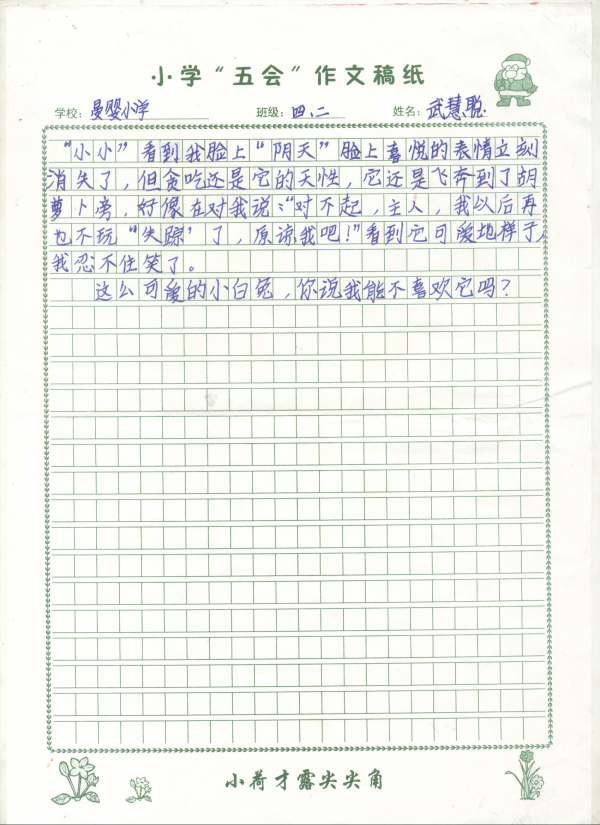 小学“五会”作文稿纸
学校：曼婴小学 班级：四、二 姓名：武慧聪
“小小”看到我脸上“阴天”脸上喜悦的表情立刻
消失了，但贪吃还是它的天性，它还是飞奔到了胡
萝卜旁，好像在对我说：“对不起，主人，我以后再
也不玩“失踪”了，原谅我吧！”看到它可爱地样子，
我忍不住笑了。
这么可爱的小白兔，你说我能不喜欢它吗？
小荷才露尖尖角